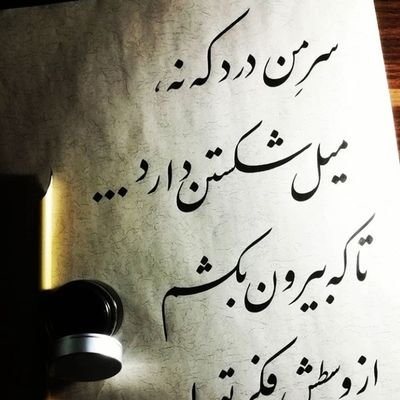 سرِ من درد که نه،
میل شکستن دارد...
تا که بیرون بکشم
از وسطش فکر تو را